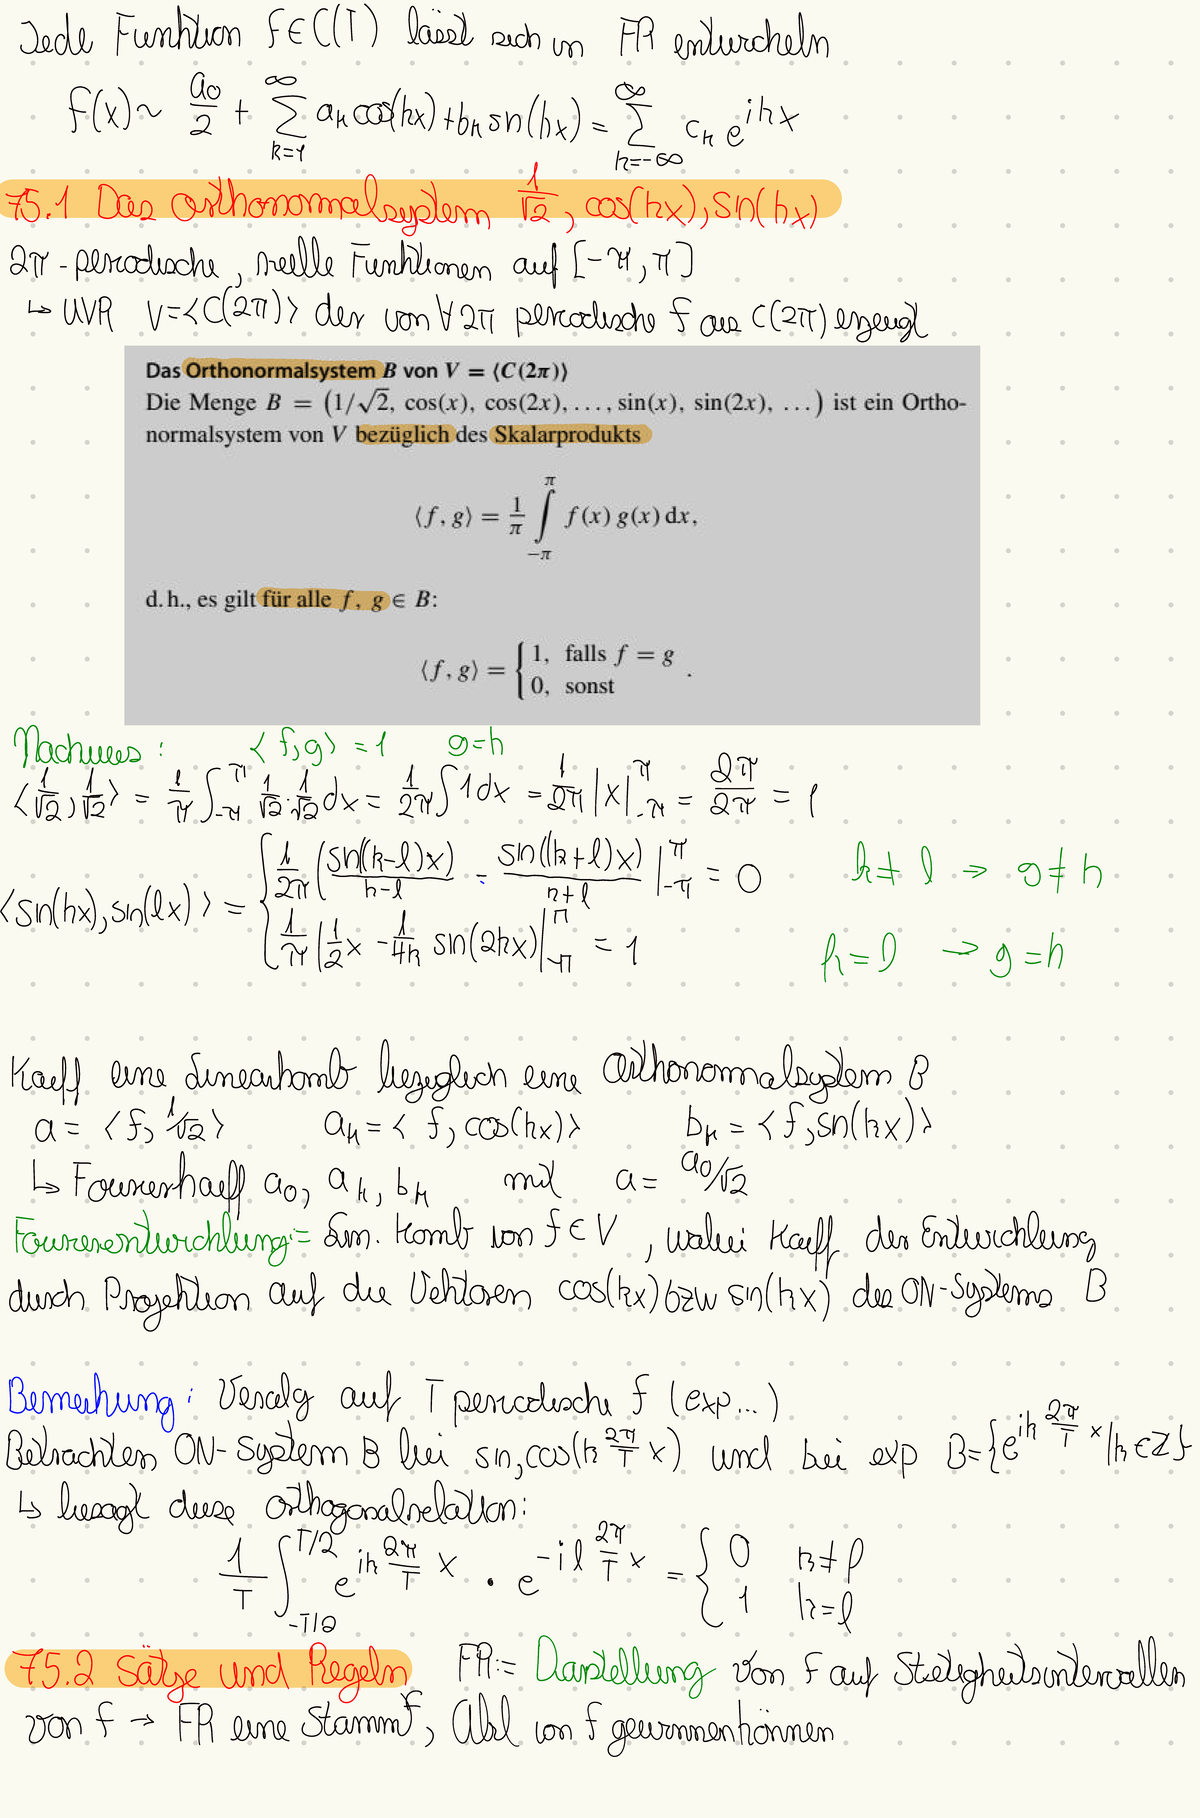 Jede Funktion f∈C(T) lässt sich in FR entwickeln
f(x)~ a₀/2 + ∑_{k=1}^{∞} aₖ cos(kx) + bₖ sin(kx) = ∑_{k=-∞}^{∞} cₖ e^{ikx}
75.1 Das Orthonormalsystem 1/√2, cos(kx), sin(kx)
2π-periodische, reelle Funktionen auf [-π, π]
↳ UVR V=⟨C(2π)⟩ der von ∀ 2π periodische f aus C(2π) erzeugt
Das Orthonormalsystem B von V = ⟨C(2π)⟩
Die Menge B = (1/√2, cos(x), cos(2x), ..., sin(x), sin(2x), ...) ist ein Ortho-
normalsystem von V bezüglich des Skalarprodukts
⟨f, g⟩ = 1/π ∫_{-π}^{π} f(x) g(x) dx,
d.h., es gilt für alle f, g ∈ B:
⟨f, g⟩ = { 1, falls f = g
0, sonst .
Nachweis: ⟨f,g⟩ = 1 g=h
⟨1/√2, 1/√2⟩ = 1/π ∫_{-π}^{π} 1/√2 · 1/√2 dx = 1/2π ∫ 1 dx = 1/2π |x|_{-π}^{π} = 2π/2π = 1
⟨sin(kx), sin(lx)⟩ = { 1/2π (sin(k-l)x)/(k-l) - sin((k+l)x)/(k+l) |_{-π}^{π} = 0 k≠l → g≠h
1/π |1/2 x - 1/4k sin(2kx)|_{-π}^{π} = 1 k=l → g=h
Koeff. eine Linearkomb bezüglich eine Orthonormalsystem B
a = ⟨f, 1/√2⟩ aₖ = ⟨f, cos(kx)⟩ bₖ = ⟨f, sin(kx)⟩
↳ Fourierkoeff a₀, aₖ, bₖ mit a = a₀/√2
Fourierentwicklung:= Lin. Komb von f∈V, wobei Koeff. der Entwicklung
durch Projektion auf die Vektoren cos(kx) bzw sin(kx) des ON-Systems B
Bemerkung: Veralg auf T periodische f (exp...)
Betrachten ON-System B bei sin, cos(k 2π/T x) und bei exp B={e^{ik 2π/T x} | k∈Z}
↳ besagt diese Orthogonalrelation:
1/T ∫_{-T/2}^{T/2} e^{ik 2π/T x} · e^{-il 2π/T x} = { 0 k≠l
1 k=l
75.2 Sätze und Regeln FR:= Darstellung von f auf Stetigkeitsintervallen
von f → FR eine Stammf, Abl von f gewinnen können